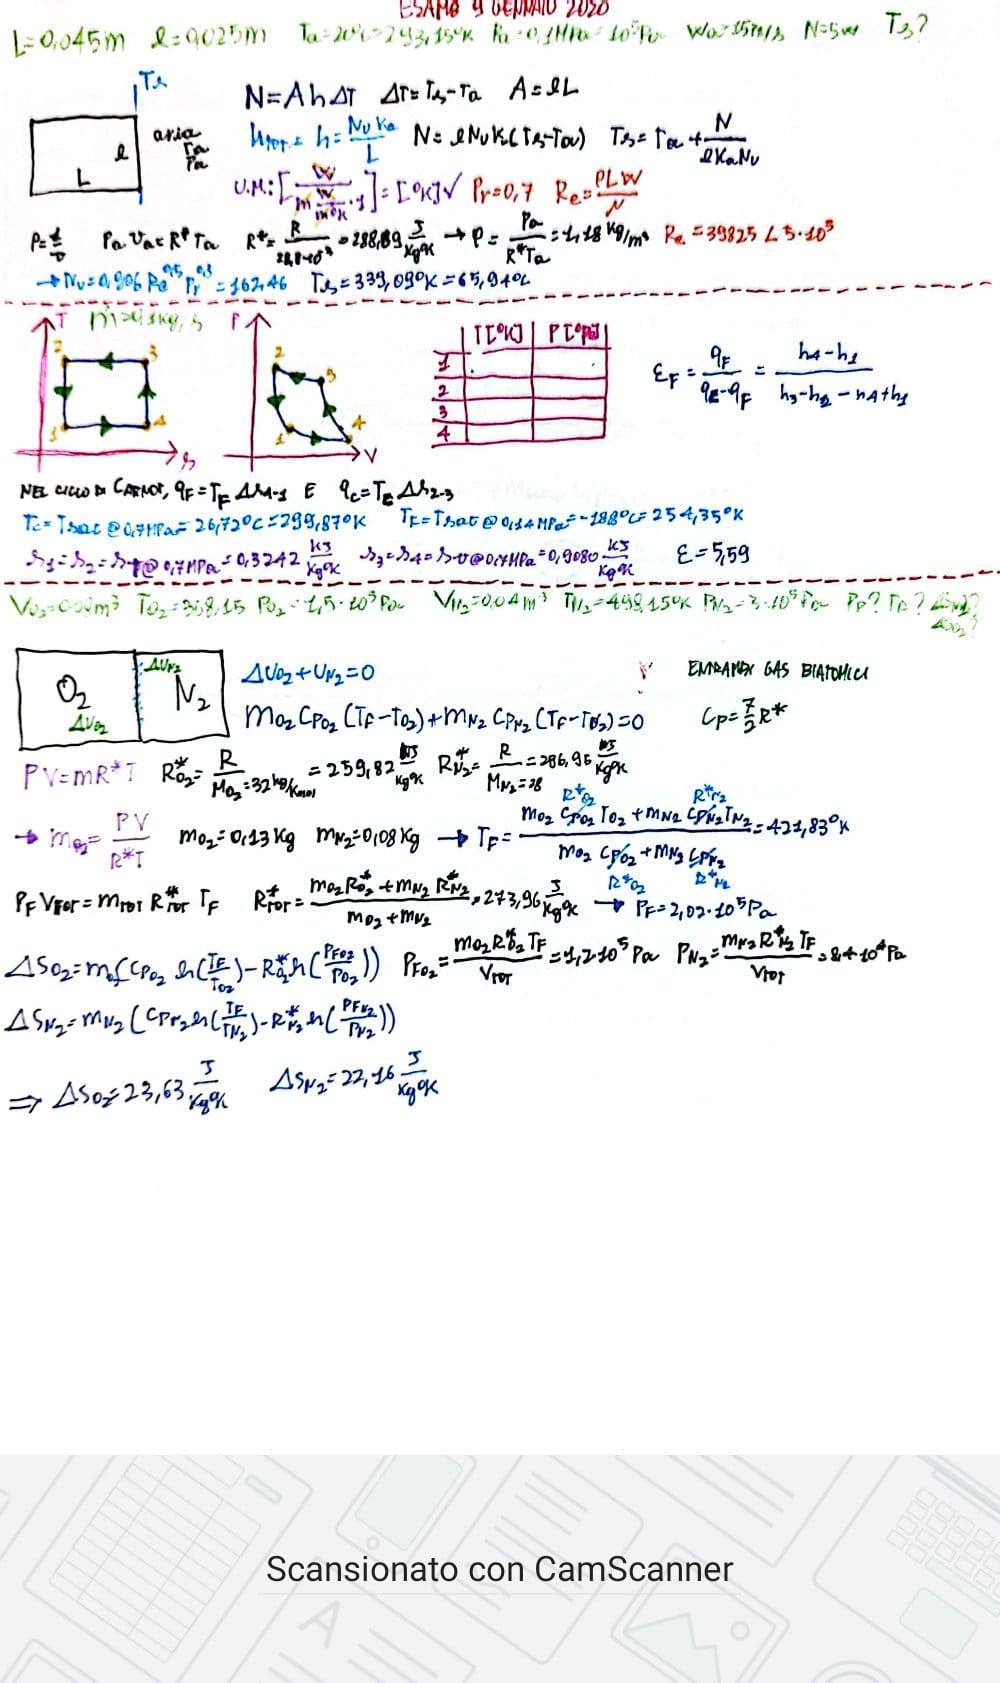 ESAME 9 GENNAIO 2020
L=0,045m l=0,025m Ta=20°C=293,15°K Pa=0,1MPa=10⁵Pa Wa=15m/s N=5W Ts?
Ts
aria
Ta
Pa
l
L
N=Ah∆T ∆T=Ts-Ta A=lL
h = Nu Ka / L N=lNuK(Ts-Ta) Ts=Ta+ N / lKaNu
U.M:[ W / m W/m°K ·1 ]=[°K]√ Pr=0,7 Re= ρLW / μ
ρ= 1/v Pa Va=R* Ta R*= R / = 288,89 J/kg°K → ρ= Pa / R*Ta = 1,18 kg/m³ Re=39825 < 5·10⁵
→ Nu=0,906 Re^0,5 Pr^0,3 = 162,46 Ts=339,09°K=65,94°C
T
2 3
1 4
s
P
2 3
1 4
V
T[°K] P[°Pa]
1
2
3
4
εF = qF / qC-qF = h4-h1 / h3-h2-h4+h1
NEL CICLO DI CARNOT, qF=TF ∆s4-1 E qc=TC ∆s2-3
Tc=Tsat@0,7MPa=26,72°C=299,87°K TF=Tsat@0,14MPa=-18,8°C=254,35°K
s1=s2=sf@0,7MPa=0,3242 kJ/kg°K s3=s4=sv@0,7MPa=0,9080 kJ/kg°K ε=5,59
TO2=368,15 PO2=1,5·10⁵Pa VN2=0,04m³ TN2=498,150K PN2=3·10⁵Pa PF? TF?
O2
∆UO2
∆UN2
N2
∆UO2+UN2=0
ENTRAMBI GAS BIATOMICI
mO2 CPO2 (TF-TO2)+mN2 CPN2 (TF-TN2)=0 Cp= 7/2 R*
PV=mR*T R*O2= R / MO2=32 kg/kmol = 259,82 J/kg°K R*N2= R / MN2=28 = 296,95 J/kg°K
→ m= PV / R*T mO2=0,13Kg mN2=0,08Kg → TF= mO2 CPO2 TO2 + mN2 CPN2 TN2 / mO2 CPO2 + mN2 CPN2 = 421,83°K
R*O2 R*N2
R*O2 R*N2
PF VTOT=mTOT R*TOT TF R*TOT= mO2 R*O2 + mN2 R*N2 / mO2+mN2 = 273,96 J/kg°K → PF=2,02·10⁵Pa
∆SO2=m(CPO2 ln(TF/TO2)-R*O2 ln(PFO2/PO2)) PFO2= mO2 R*O2 TF / VTOT = 1,2·10⁵ Pa PN2= mN2 R*N2 TF / VTOT
∆SN2=mN2(CPN2 ln(TF/TN2)-R*N2 ln(PFN2/PN2))
⇒ ∆SO2=23,63 J/Kg°K ∆SN2=22,16 J/Kg°K
Scansionato con CamScanner